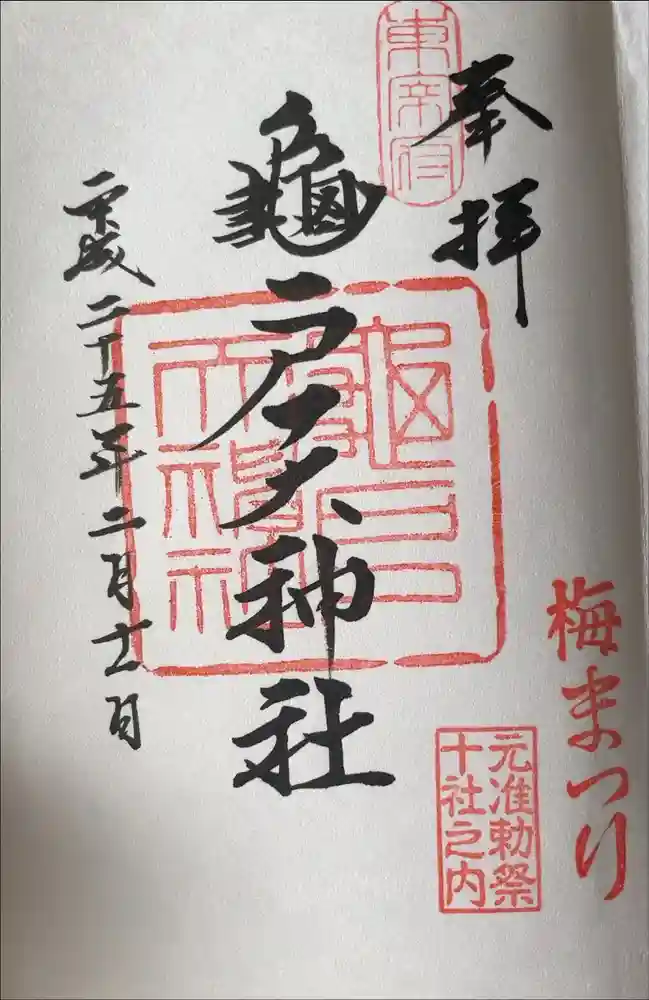 奉拝
東宰府
梅まつり
元准勅祭
十社之内
龜戸天神社
平成二十五年二月十一日